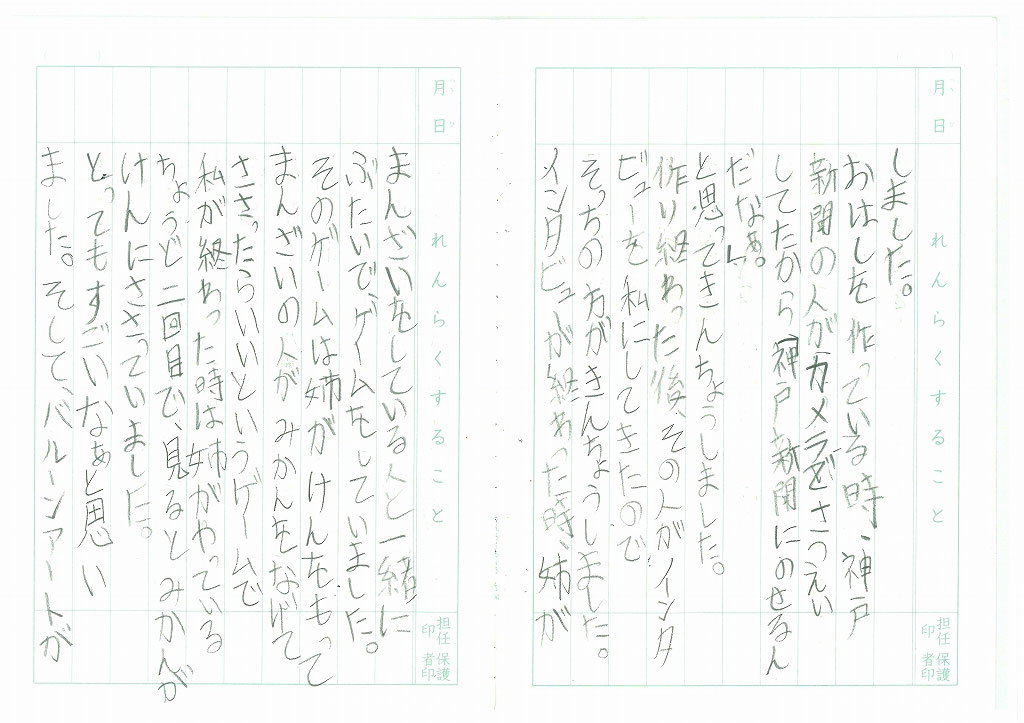 月 日
れんらくすること
担任印
保護者印
しました。
おはしを作っている時、神戸
新聞の人がカメラでさつえい
してたから「神戸新聞にのせるん
だなぁ。」
と思ってきんちょうしました。
作り終わった後、その人がインタ
ビューを私にしてきたので
そっちの方がきんちょうしました。
インタビューが終わった時、姉が
月 日
れんらくすること
担任印
保護者印
まんざいをしている人と一緒に
ぶたいで、ゲームをしていました。
そのゲームは姉がけんをもって
まんざいの人がみかんをなげて
ささったらいいというゲームで
私が終わった時は姉がやっている
ちょうど二回目で、見るとみかんが
けんにささっていました。
とってもすごいなぁと思い
ました。そしてバルーンアートが